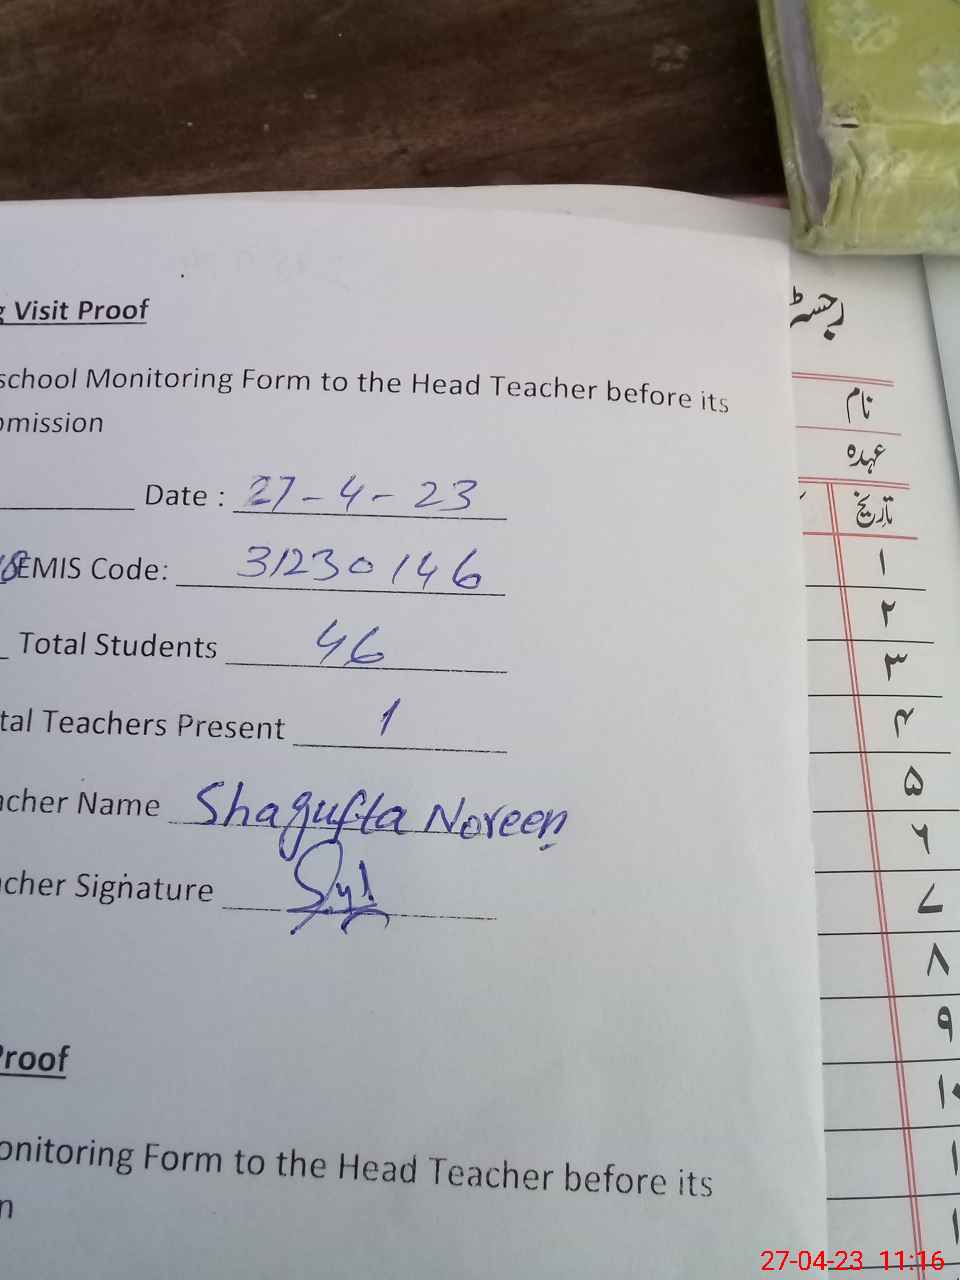 Visit Proof
school Monitoring Form to the Head Teacher before its
omission
Date : 27-4-23
EMIS Code: 31230146
Total Students 46
tal Teachers Present 1
acher Name Shagufta Noreen
acher Signature
Proof
onitoring Form to the Head Teacher before its
n
رجسٹ
نام
عہدہ
تاریخ
۱
۲
۳
۴
۵
۶
۷
۸
۹
۱۰
۱
۱
27-04-23 11:16